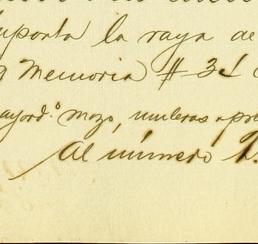 importa la raya de
Memoria # 31
ayord.º mozo, muleras a pre
Al número